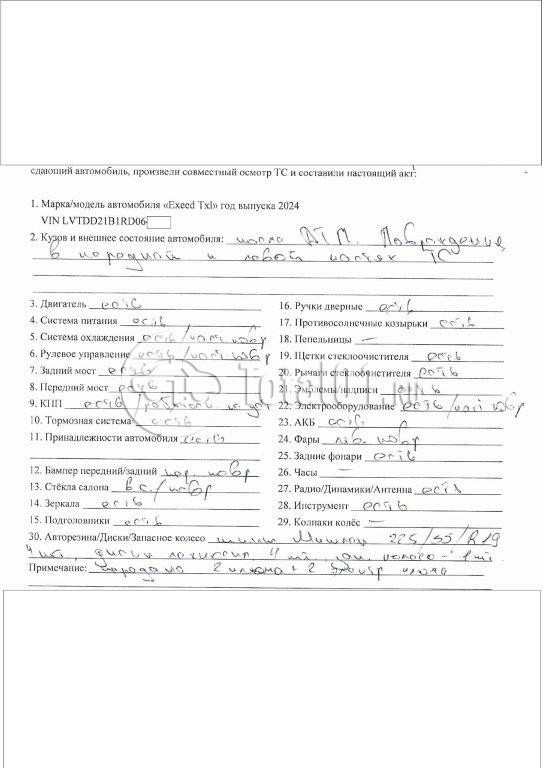 сдающий автомобиль, произвели совместный осмотр ТС и составили настоящий акт:
1. Марка/модель автомобиля «Exeed Txl» год выпуска 2024
VIN LVTDD21B1RD06
2. Кузов и внешнее состояние автомобиля: после ДТП. Повреждения,
в передней и левой частях ТС
3. Двигатель есть
16. Ручки дверные есть
4. Система питания есть
17. Противосолнечные козырьки есть
5. Система охлаждения есть /част. повр
18. Пепельницы —
6. Рулевое управление есть /част. повр
19. Щетки стеклоочистителя есть
7. Задний мост есть
20. Рычаги стеклоочистителя есть
8. Передний мост есть
21. Эмблемы/надписи есть
9. КПП есть /работосп. не уст
22. Электрооборудование есть /част повр
10. Тормозная система есть
23. АКБ есть
11. Принадлежности автомобиля есть
24. Фары лев. повр
25. Задние фонари есть
12. Бампер передний/задний пер. повр
26. Часы —
13. Стёкла салона в.с./повр
27. Радио/Динамики/Антенна есть
14. Зеркала есть
28. Инструмент есть
15. Подголовники есть
29. Колпаки колёс —
30. Авторезина/Диски/Запасное колесо 225/55/R19
4 шт, диски 4 шт, колесо - 1 шт.
Примечание: передано 2 ключа + 2
Total01.RU